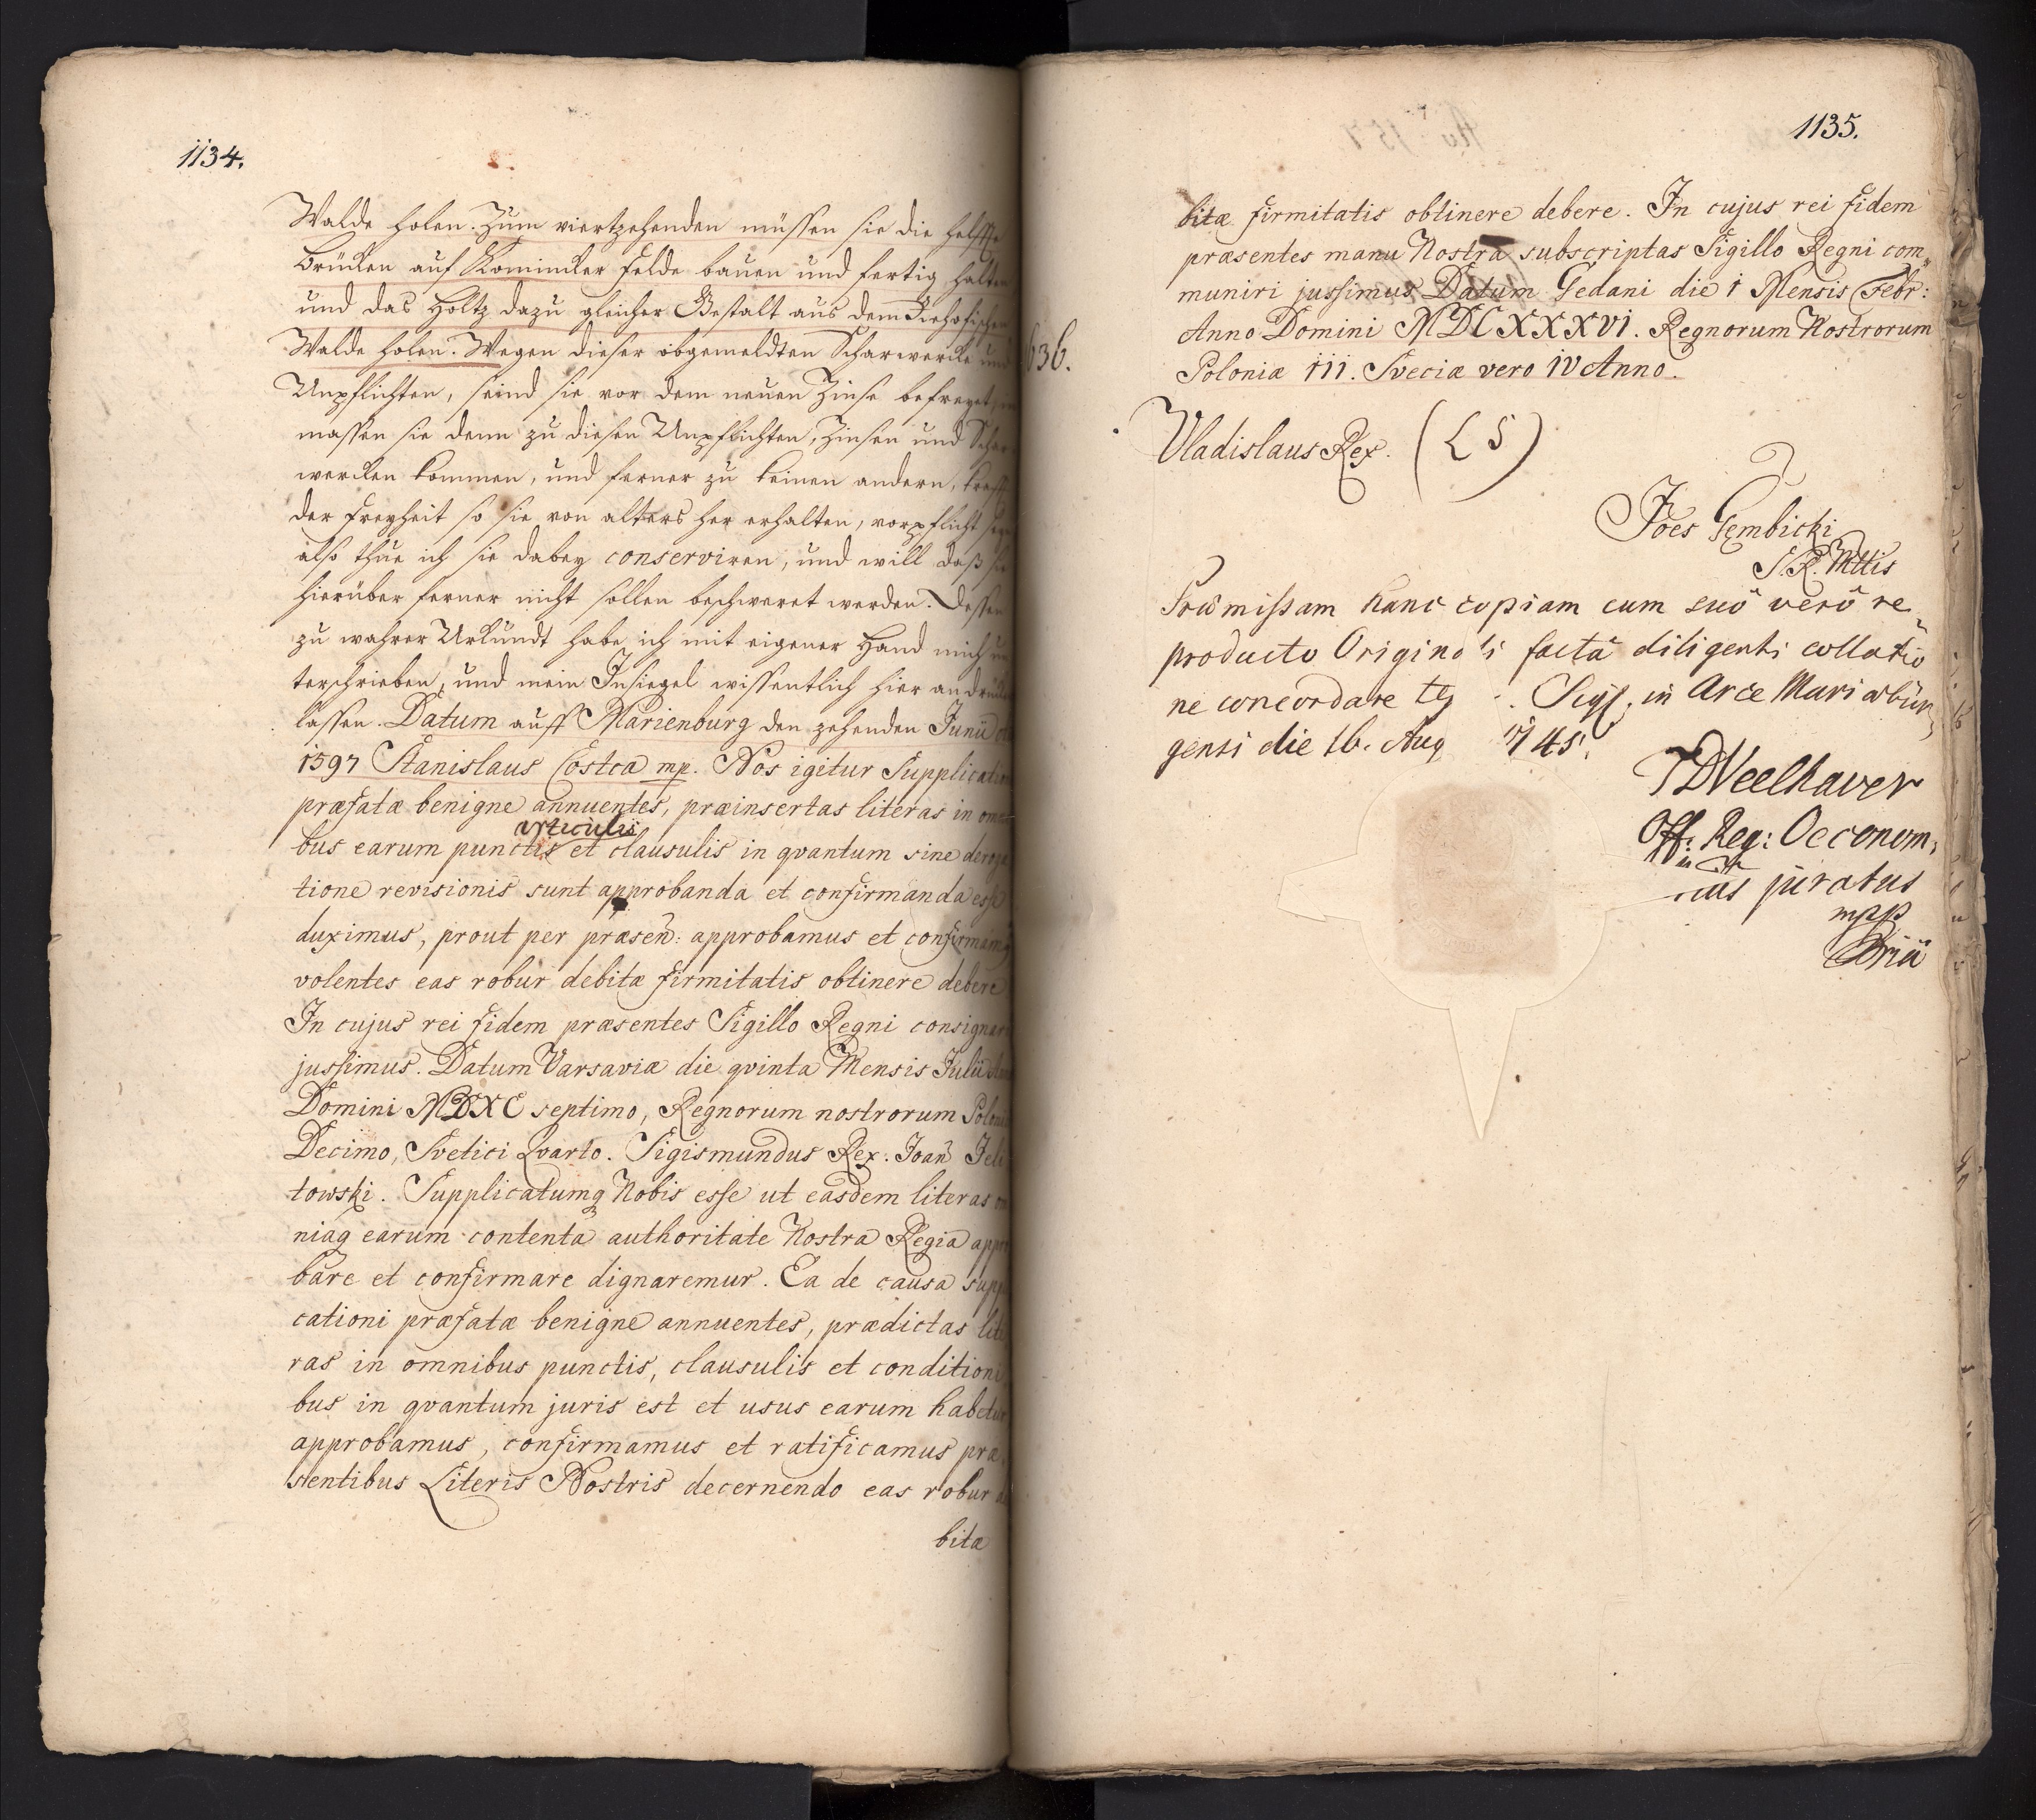 1134.
Walde holen. Zum viertzehenden müssen sie die helffte
Brücken auf Komincker Felde bauen und fertig halten
und das Holtz dazu gleicher Gestalt aus dem
Walde holen. Wegen dieser obgemeldten Scharwercke und
Unpflichten, seind sie vor dem neuen Zinse befreyet,
massen sie denn zu diesen Unpflichten, Zinsen und Schar
wercken kommen, und ferner zu keinen andern, krafft
der Freyheit so sie von alters her erhalten, verpflicht seyn
also thue ich sie dabey conserviren, und will daß sie
hierüber ferner nicht sollen beschweret werden. Dessen
zu wahrer Urkundt habe ich mit eigener Hand mich un
terschrieben, und mein Insiegel wissentlich hier an drücken
lassen. Datum auff Marienburg den zehenden Junii
1597 Stanislaus Costca mp. Nos igitur Supplicationi
præfatæ benigne annuentes, præinsertas literas in omni
articulis
bus earum punctis et clausulis in qvantum sine deroga
tione revisionis sunt approbanda et confirmanda esse
duximus, prout per præsen̄: approbamus et confirmamꝰ
volentes eas robur debitæ firmitatis obtinere debere
In cujus rei fidem præsentes Sigillo Regni consignari
jussimus. Datum Varsaviæ die qvinta Mensis Julii Anno
Domini MDXC septimo, Regnorum nostrorum Poloniæ
Decimo, Svetici Qvarto. Sigismundus Rex. Joañ Jeli
towski. Supplicatumq Nobis esse ut easdem literas om
niaq earum contenta authoritate Nostra Regia appro
bare et confirmare dignaremur. Ea de causa suppli
cationi præfatæ benigne annuentes, prædictas lite
ras in omnibus punctis, clausulis et conditioni
bus in qvantum juris est et usus earum habetur
approbamus, confirmamus et ratificamus præ
sentibus Literis Nostris decernendo eas robur de
bitæ
1135.
bitæ firmitatis obtinere debere. In cujus rei fidem
præsentes manu Nostra subscriptas Sigillo Regni com„
muniri jussimus Datum Gedani die 1 Mensis Febr:
Anno Domini MDCXXXVI. Regnorum Nostrorum
636.
Poloniæ III. Sveciæ vero IV Anno.
Vladislaus Rex. (L S)
Joes Gembicki
S. R. Mttis
Præmissam hanc copiam cum suo vero re„
producto Originali facta diligenti collatio
ne concordare Sigf. in Arce Mariæbur„
gensi die 16. Aug 1745.
TDWeelhaver
Off: Reg: Oeconom:
juratus
mpp